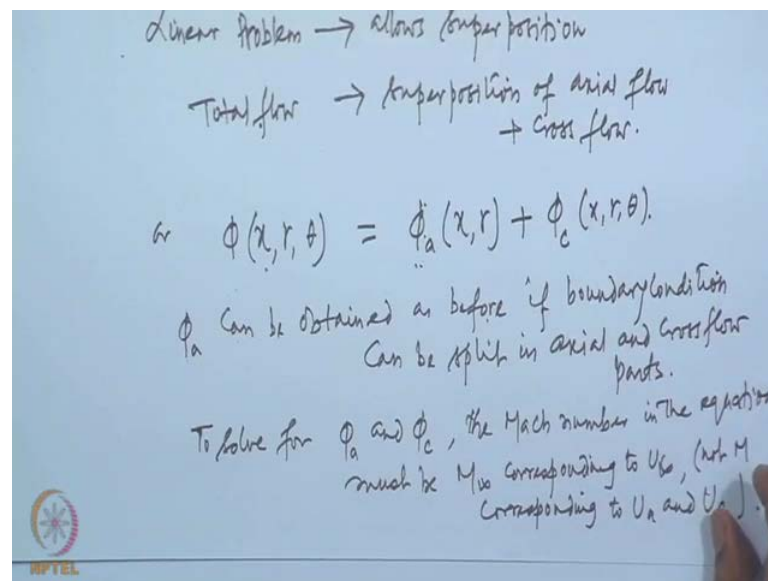 Linear Problem → allows superposition
Total flow → superposition of axial flow
+ Cross flow.
or φ(x, r, θ) = φₐ(x, r) + φ_c(x, r, θ).
φₐ can be obtained as before if boundary condition
can be split in axial and crossflow
parts.
To solve for φₐ and φ_c, the Mach number in the equation
must be M∞ corresponding to U∞, (not M
corresponding to Uₐ and U ).
NPTEL